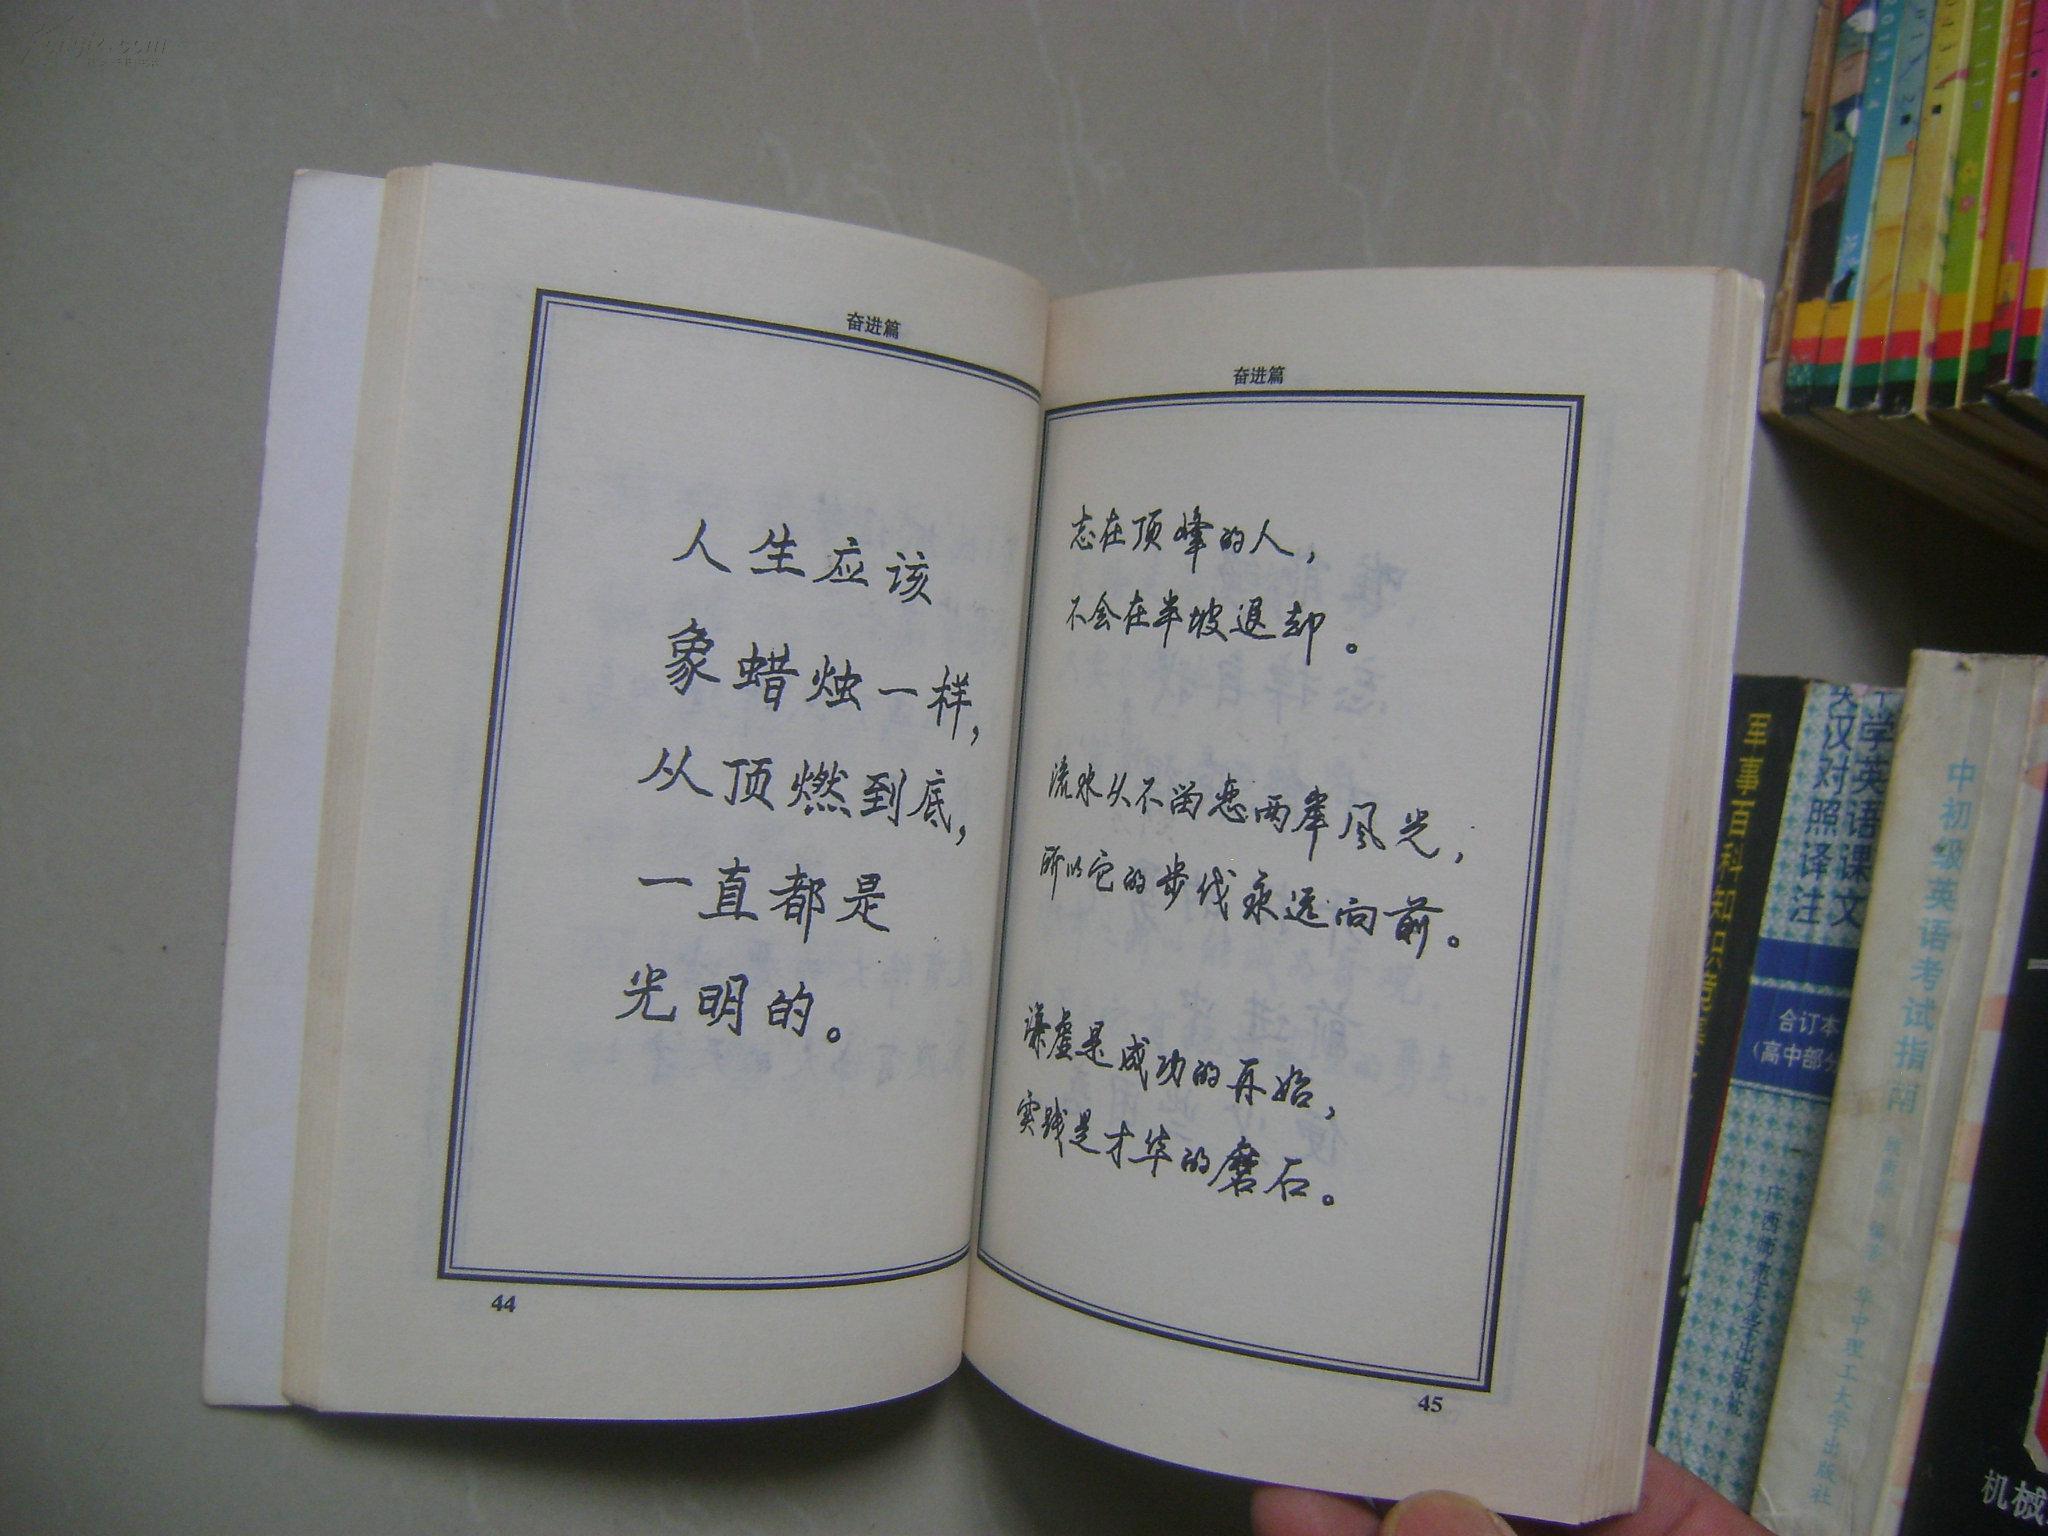 奋进篇
人生应该
象蜡烛一样，
从顶燃到底，
一直都是
光明的。
44
奋进篇
志在顶峰的人，
不会在半坡退却。
流水从不留恋两岸风光，
所以它的步伐永远向前。
谦虚是成功的再始，
实践是才华的磨石。
45
军事百科知识竞
学英语课文
汉对照译注
合订本
(高中部分
广西师范大学出版社
中初级英语考试指南
华中理工大学出版社
机械